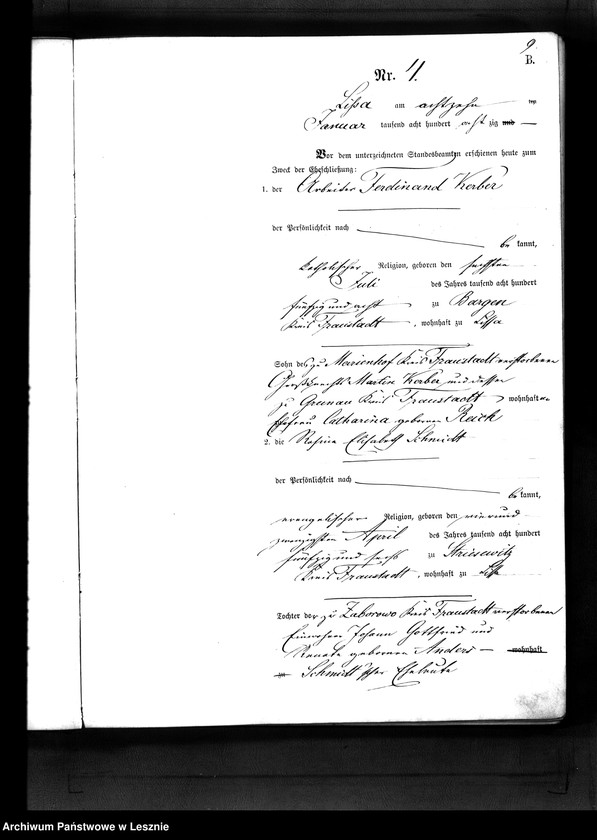 9
B.
Nr. 4.
Lissa am achtzehn ten
Januar tausend acht hundert acht zig und
Vor dem unterzeichneten Standesbeamten erschienen heute zum
Zweck der Eheschließung:
1. der Arbeiter Ferdinand Kerber
der Persönlichkeit nach
be kannt,
katholischer Religion, geboren den sechsten
Juli des Jahres tausend acht hundert
fünfzig und acht zu Bargen
Kreis Fraustadt, wohnhaft zu Lissa
Sohn des zu Marienhof Kreis Fraustadt verstorbenen
Martin Kerber und dessen
zu Grunau Kreis Fraustadt wohnhaften
Ehefrau Catharina geborenen Reich
2. die Rosina Elisabeth Schmidt
der Persönlichkeit nach
be kannt,
evangelischer Religion, geboren den vierund
zwanzigsten April des Jahres tausend acht hundert
fünfzig und sechs zu Striesewitz
Kreis Fraustadt, wohnhaft zu Lissa
Tochter der zu Zaborowo Kreis Fraustadt verstorbenen
Einwohner Johann Gottfried und
Renate geborenen Anders wohnhaft
zu Schmidt'schen Eheleute
Archiwum Państwowe w Lesznie